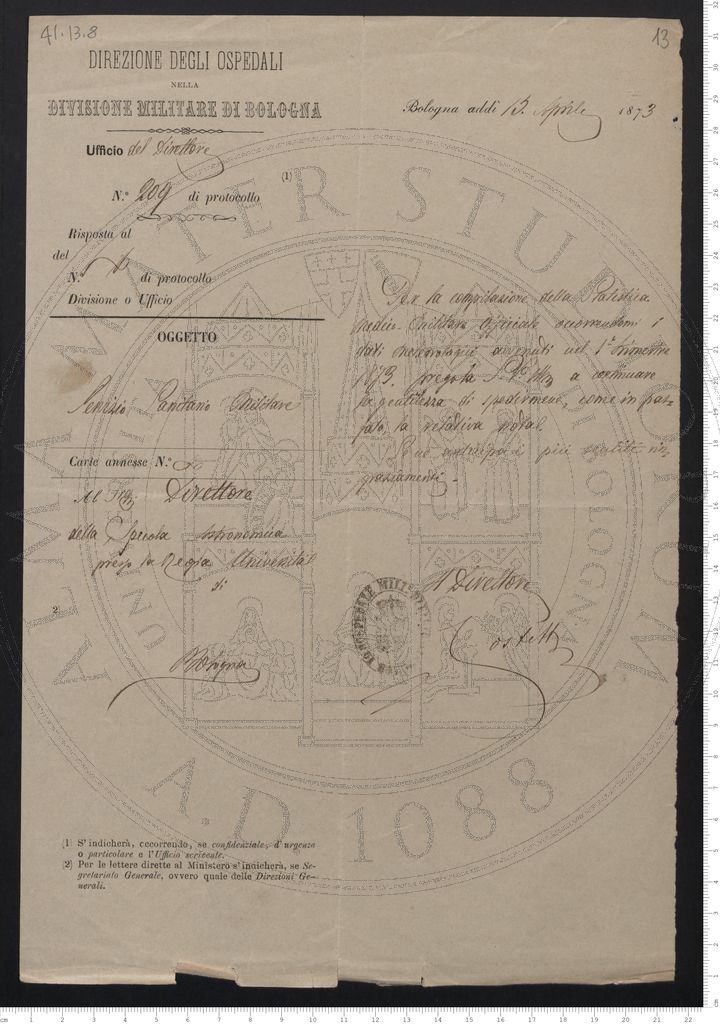 41.13.8
13
DIREZIONE DEGLI OSPEDALI
NELLA
DIVISIONE MILITARE DI BOLOGNA
Bologna addì 13. Aprile 1873
Ufficio del Direttore
(1)
N.° 209 di protocollo
Risposta al
del
N.° di protocollo
Divisione o Ufficio
OGGETTO
Servizio Sanitario Militare
Carte annesse N.°
Al Direttore
della Specola Astronomica
presso la Regia Università
di
2)
Bologna
Per la compilazione della Statistica
medico Militare Ufficiale occorrendomi i
dati meteorologici avvenuti nel 1° trimestre
1873. prego la S. V. a continuare
la gentilezza di spedirmene, come in pas-
sato, la relativa nota.
Le ne anticipo i più sentiti rin-
graziamenti.
Il Direttore
OSPEDALE MILITARE
ALMA MATER STUDIORUM
BOLOGNA
A.D. 1088
(1) S'indicherà, occorrendo, se confidenziale, d'urgenza
o particolare e l'Ufficio scrivente.
(2) Per le lettere dirette al Ministero s'indicherà, se Se-
gretariato Generale, ovvero quale delle Direzioni Ge-
nerali.